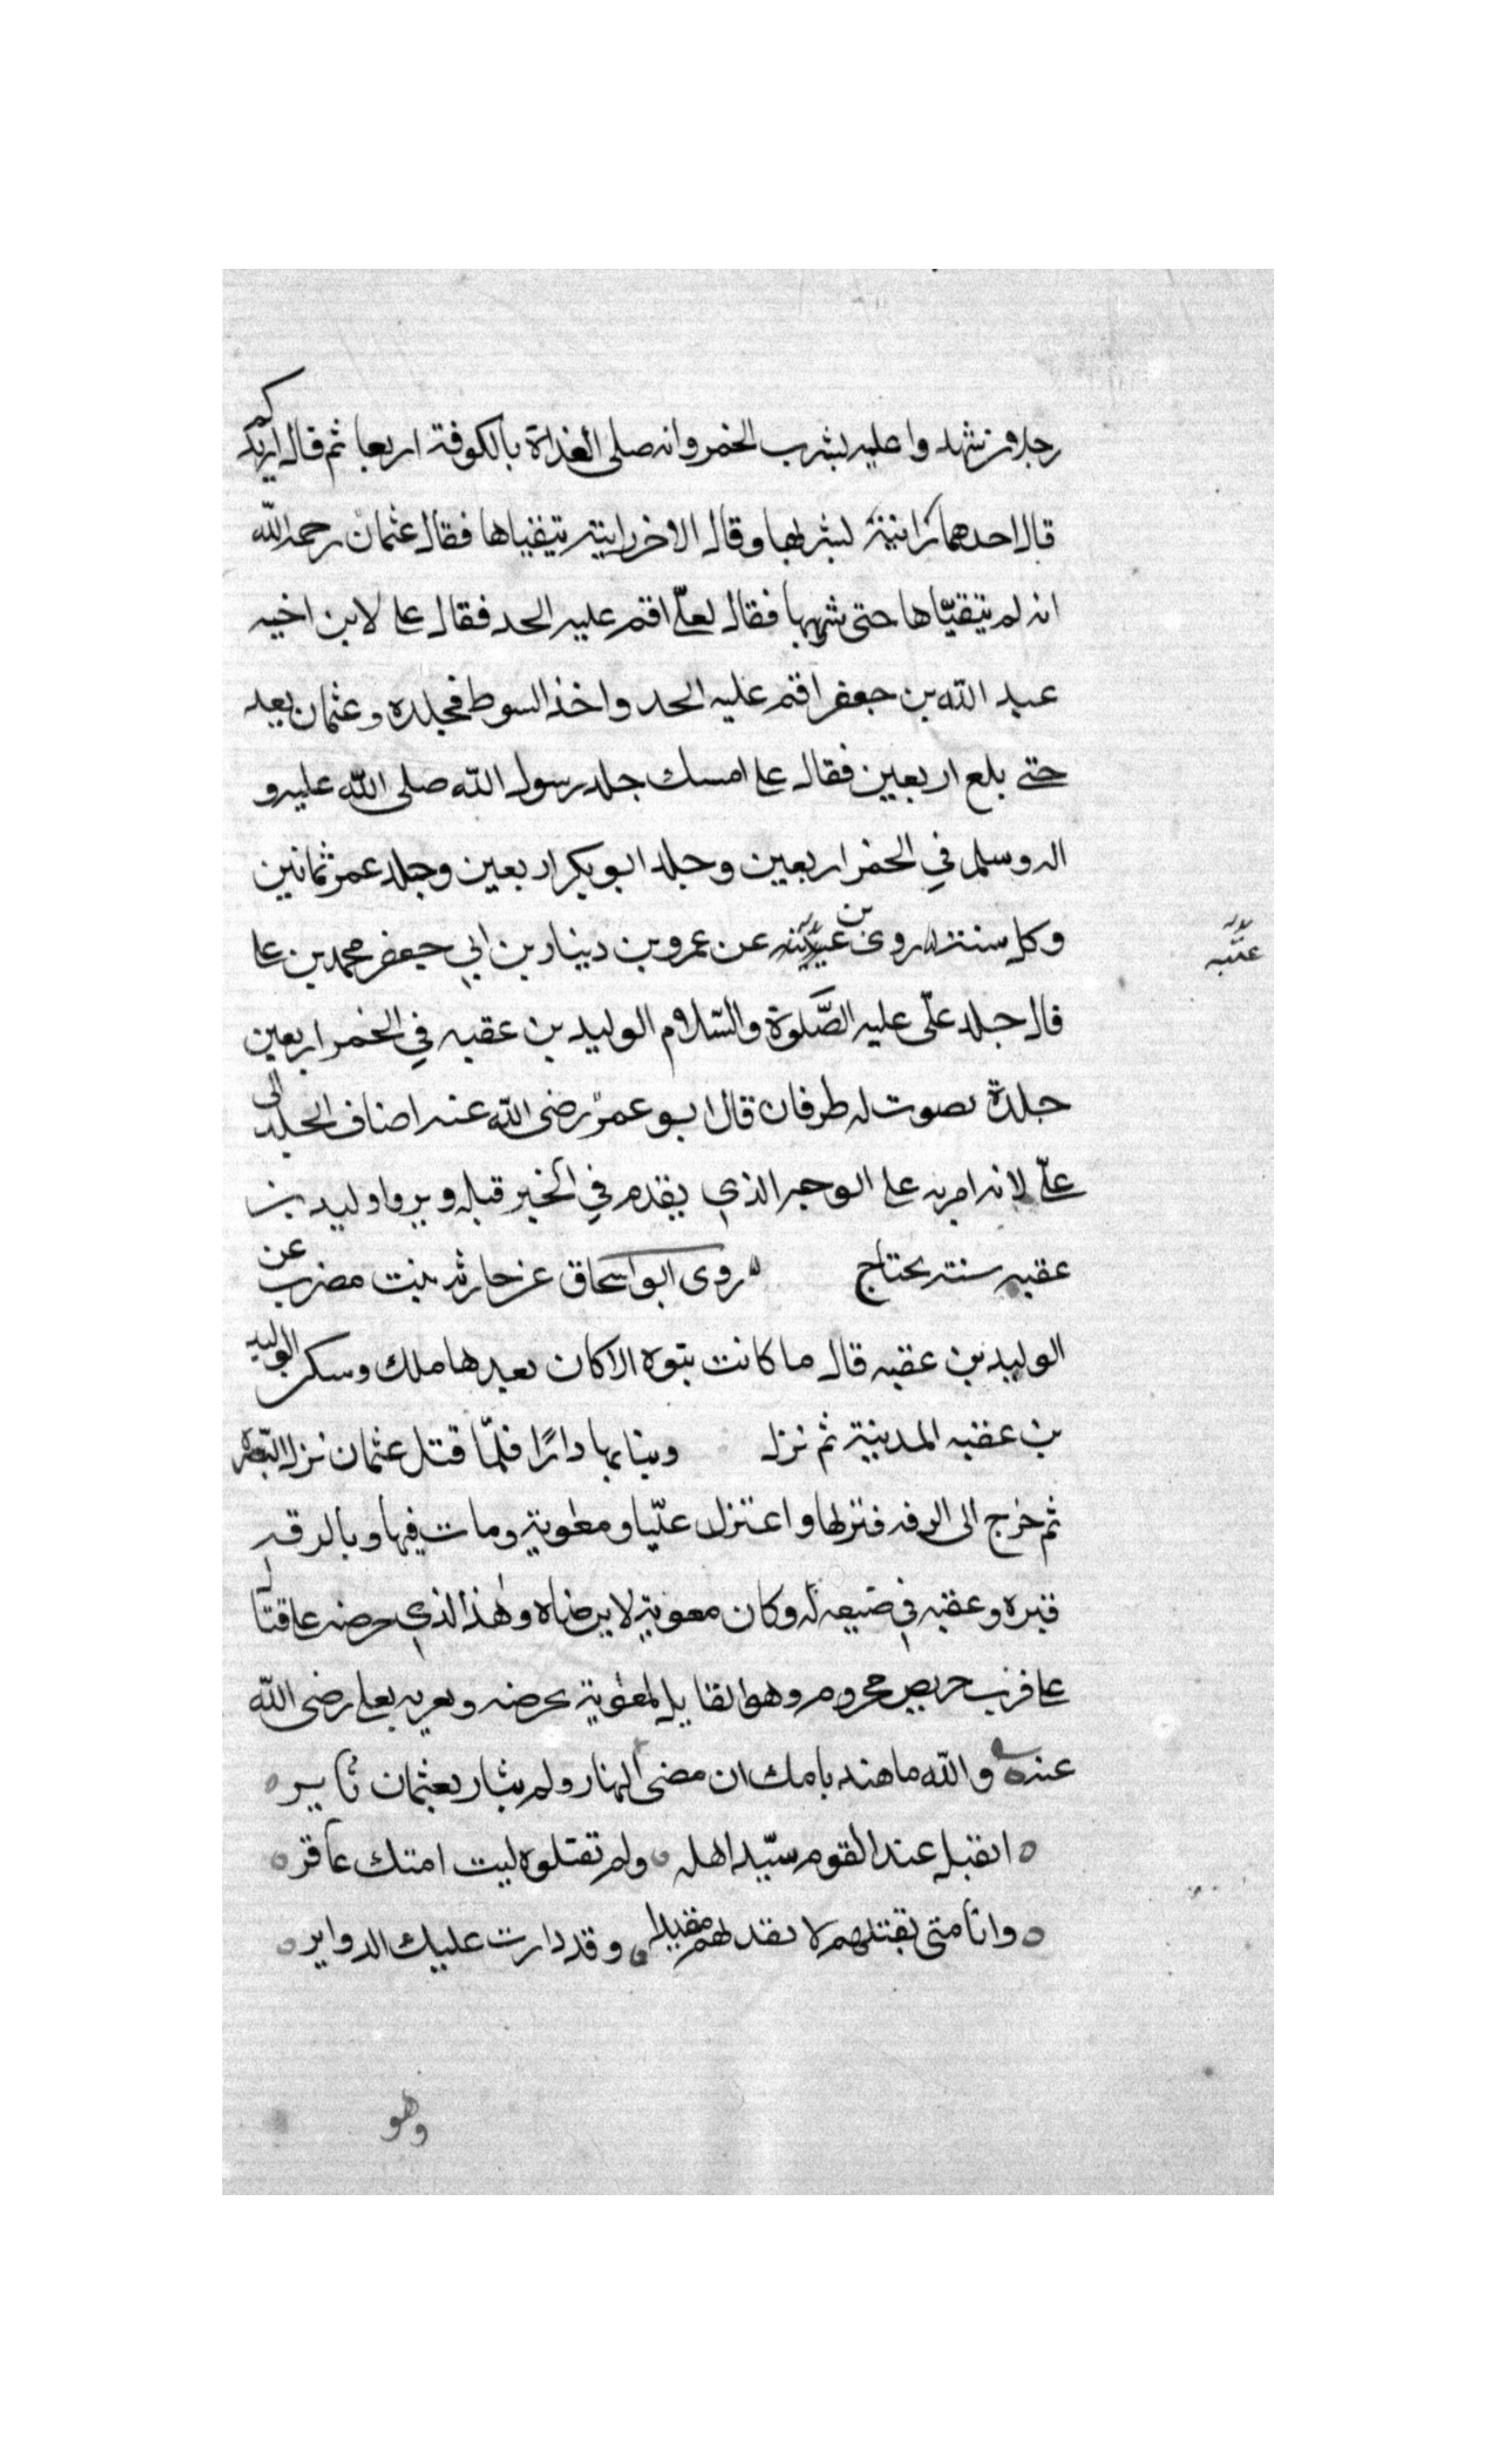 رجلان شهدوا عليه بشرب الخمر وانه صلى الغداة بالكوفة اربعا ثم قال ازيدكم
قال احدهما رايته يشربها وقال الاخر رايته يتقياها فقال عثمان رحمه الله
انه لم يتقيّاها حتى شربها فقال لعلّي اقم عليه الحد فقال على لابن اخيه
عبد الله بن جعفر اقم عليه الحد واخذ السوط فجلده وعثمان يعد
حتى بلغ اربعين فقال على امسك جلد رسول الله صلى الله عليه و
اله وسلم في الخمر اربعين وجلد ابو بكر اربعين وجلد عمر ثمانين
وكل سنته روى بن عيينه عن عمرو بن دينار بن ابي جعفر محمد بن على
عيينه
قال جلد علّى عليه الصَّلوة والسّلام الوليد بن عقبه في الخمر اربعين
جلدة بصوت له طرفان قال ابو عمر رضى الله عنه اضاف الجلد الى
علّى لانه امر به على الوجه الذي يقدم في الخبر قبله ويروا وليد بن
عقبه سنته يحتاج روى ابو اسحاق عن حارثه بنت مضرب عن
الوليد بن عقبه قال ما كانت بنوه الا كان بعدها ملك وسكن الوليد
بن عقبه المدينة ثم نزل وبنا بها دارًا فلمّا قتل عثمان نزل البصره
ثم خرج الى الرقه فنزلها واعتزل عليّا ومعوية ومات فيها وبالرقه
قبره وعقبه في ضيعه له وكان معوية لا يرضاه وهذا الذي حرضه على قتا
على فرب حريص محروم وهو القايل لمعوية يحرضه ويعريه بعلى رضى الله
عنه والله ما هند بامك ان مضى النهار ولم يثار بعثمان ثايره
ايقبل عند القوم سيّد اهله ولم تقتلوه ليت امتك عاقره
وانا متى نقتلهم لا يقد لهم مقيدا وقد دارت عليك الدوايره
وهو